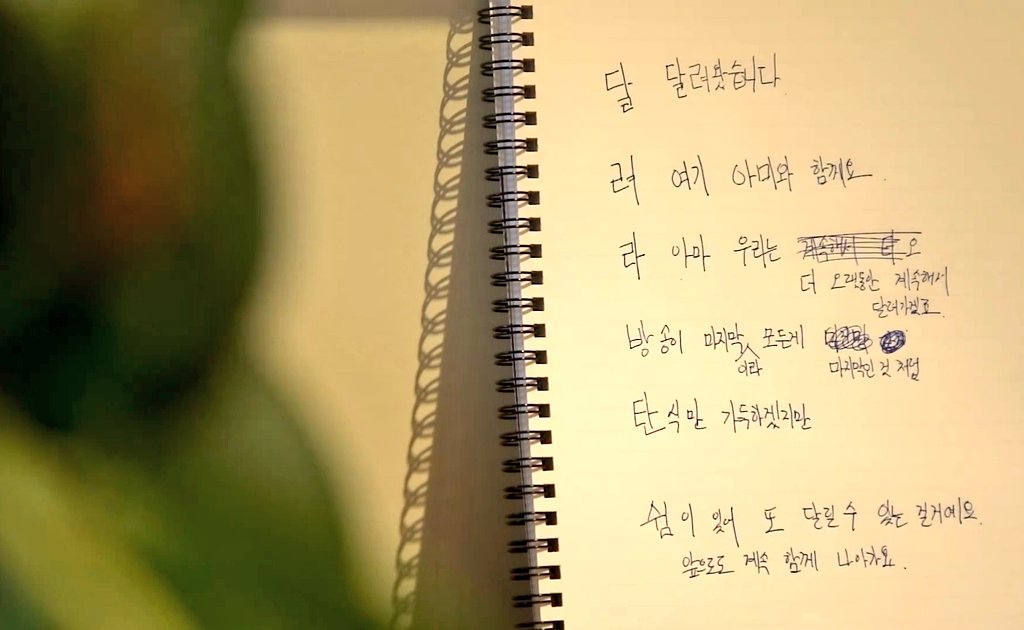 달 달려왔습니다.
려 여기 아미와 함께요.
라 아마 우리는 계속해서 더 오
더 오랫동안 계속해서
달려가겠죠.
방송이 마지막 모든게
이라 마지막인 것 처럼
탄식만 가득하겠지만
쉼이 있어 또 달릴 수 있는 걸거예요.
앞으로도 계속 함께 나아가요.